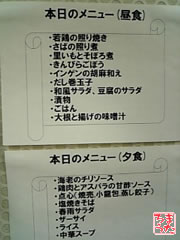 本日のメニュー(昼食)
・若鶏の照り焼き
・さばの照り煮
・里いもとそぼろ煮
・きんぴらごぼう
・インゲンの胡麻和え
・だし巻玉子
・和風サラダ、豆腐のサラダ
・漬物
・ごはん
・大根と揚げの味噌汁
本日のメニュー(夕食)
・海老のチリソース
・鶏肉とアスパラの甘酢ソース
・点心(焼売、小籠包、蒸し餃子)
・塩焼きそば
・春雨サラダ
・ザーサイ
・ライス
・中華スープ